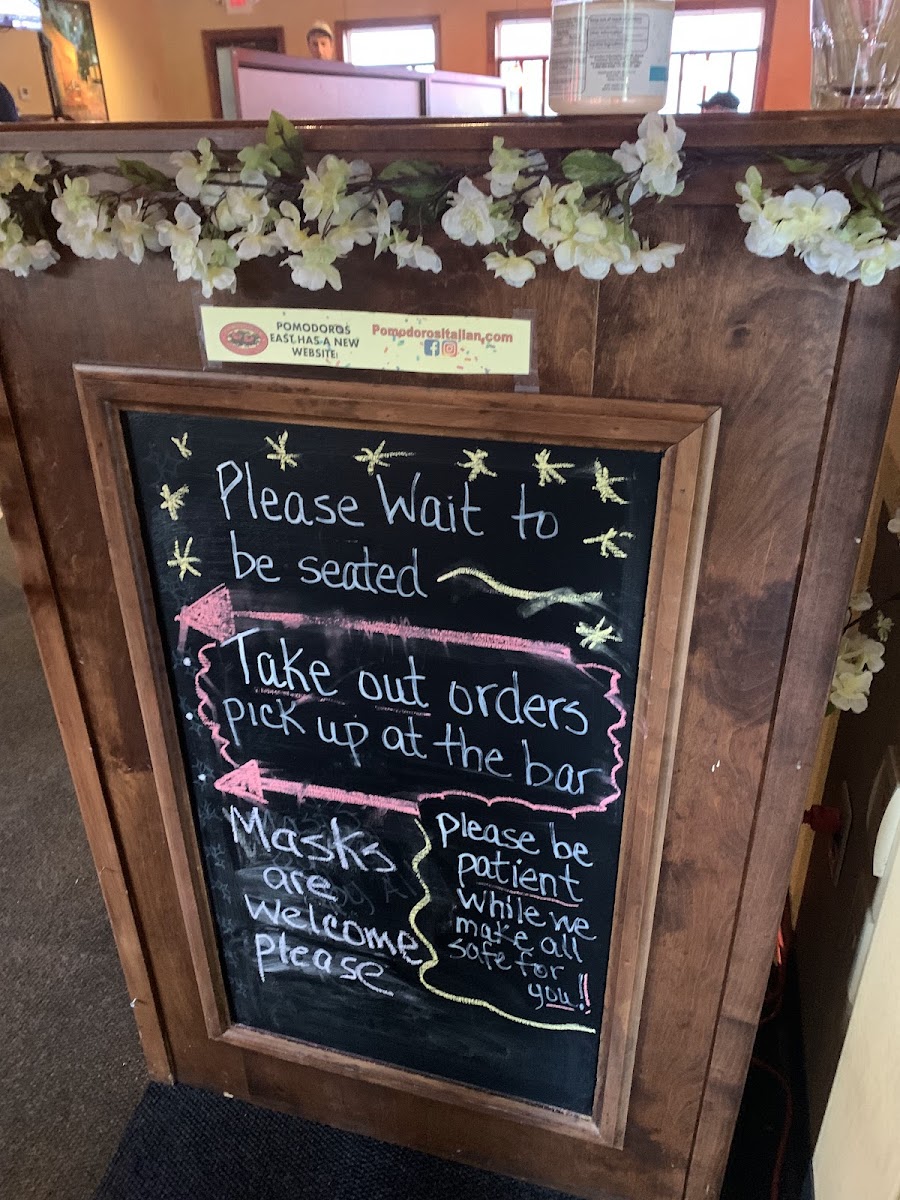 POMODOROS
EAST HAS A NEW
WEBSITE!
PomodorosItalian.com
Please Wait to
be seated
Take out orders
pick up at the bar
Masks
are
welcome
please
please be
patient
while we
make all
safe for
you!!